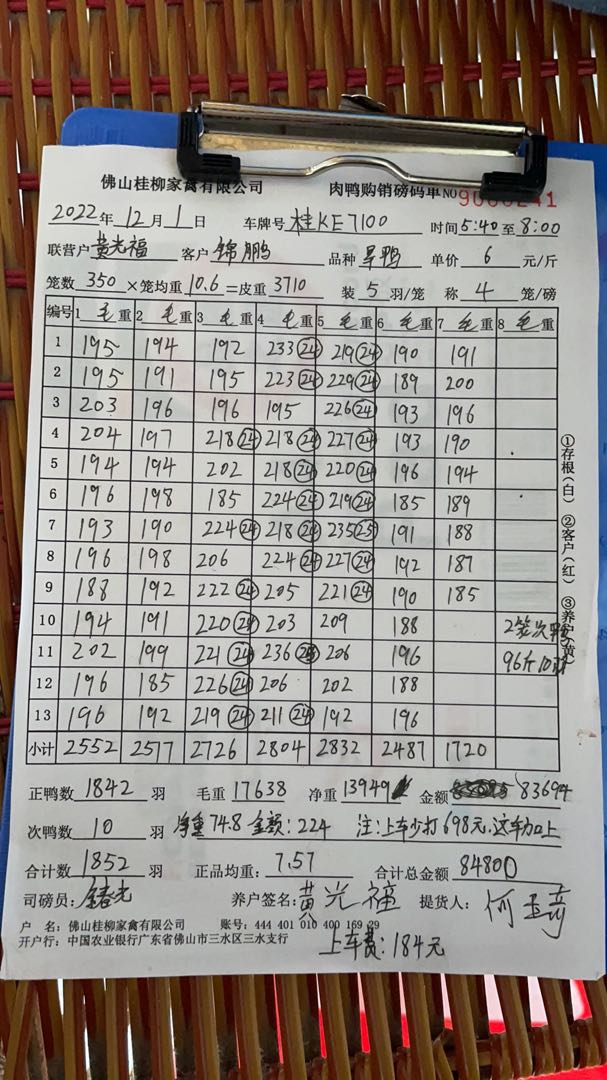 佛山桂柳家禽有限公司 肉鸭购销磅码单 NO 9000241
2022年 12月 1日 车牌号 桂KE7100 时间 5:40 至 8:00
联营户 黄光福 客户 锦鹏 品种 旱鸭 单价 6 元/斤
笼数 350 ×笼均重 10.6 =皮重 3710 装 5 羽/笼 称 4 笼/磅
编号 1 毛重 2 毛重 3 毛重 4 毛重 5 毛重 6 毛重 7 毛重 8 重
1 195 194 192 233 24 219 24 190 191
2 195 191 195 223 24 229 24 189 200
3 203 196 196 195 226 24 193 196
4 204 197 218 24 218 24 227 24 193 190
5 194 194 202 218 24 220 24 196 194
6 196 198 185 224 24 219 24 185 189
7 193 190 224 24 218 24 235 25 191 188
8 196 198 206 224 24 227 24 192 187
9 188 192 222 24 205 221 24 190 185
10 194 191 220 24 203 209 188 2笼次鸭
11 202 199 221 24 236 206 196 96斤10羽
12 196 185 226 24 206 202 188
13 196 192 219 24 211 24 192 196
小计 2552 2517 2726 2804 2832 2487 1720
①存根(白) ②客户(红) ③养户(黄)
正鸭数 1842 羽 毛重 17638 净重 13949 金额 83694
次鸭数 10 羽 净重 74.8 金额:224 注:上车少打698元,这车加上
合计数 1852 羽 正品均重: 7.57 合计总金额 84800
司磅员: 养户签名: 黄光福 提货人:
户 名: 佛山桂柳家禽有限公司 账号: 444 401 010 400 169 29
开户行: 中国农业银行广东省佛山市三水区三水支行
上车费:184元